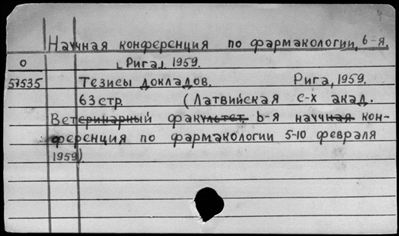 Научная конференция по фармакологии, 6-я.
О [Рига]. 1959.
57535 Тезисы докладов. Рига, 1959.
63 стр. (Латвийская с-х акад.
Ветеринарный факультет, 6-я научная кон-
ференция по фармакологии 5-10 февраля
1959)